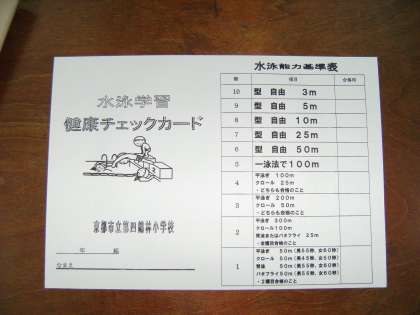 水泳学習
健康チェックカード
京都市立第四錦林小学校
年 組
なまえ
水泳能力基準表
級 種目 合格印
10 型 自由 3m
9 型 自由 5m
8 型 自由 10m
7 型 自由 25m
6 型 自由 50m
5 一泳法で100m
4 平泳ぎ 100m
クロール 25m
・どちらも合格のこと
3 平泳ぎ 200m
クロール 50m
・どちらも合格のこと
2 平泳ぎ 300m
クロール100m
背泳またはバタフライ 25m
・全種目合格のこと
1 平泳ぎ 50m
クロール 50m
背泳 50m
バタフライ50m
・2種目合格のこと